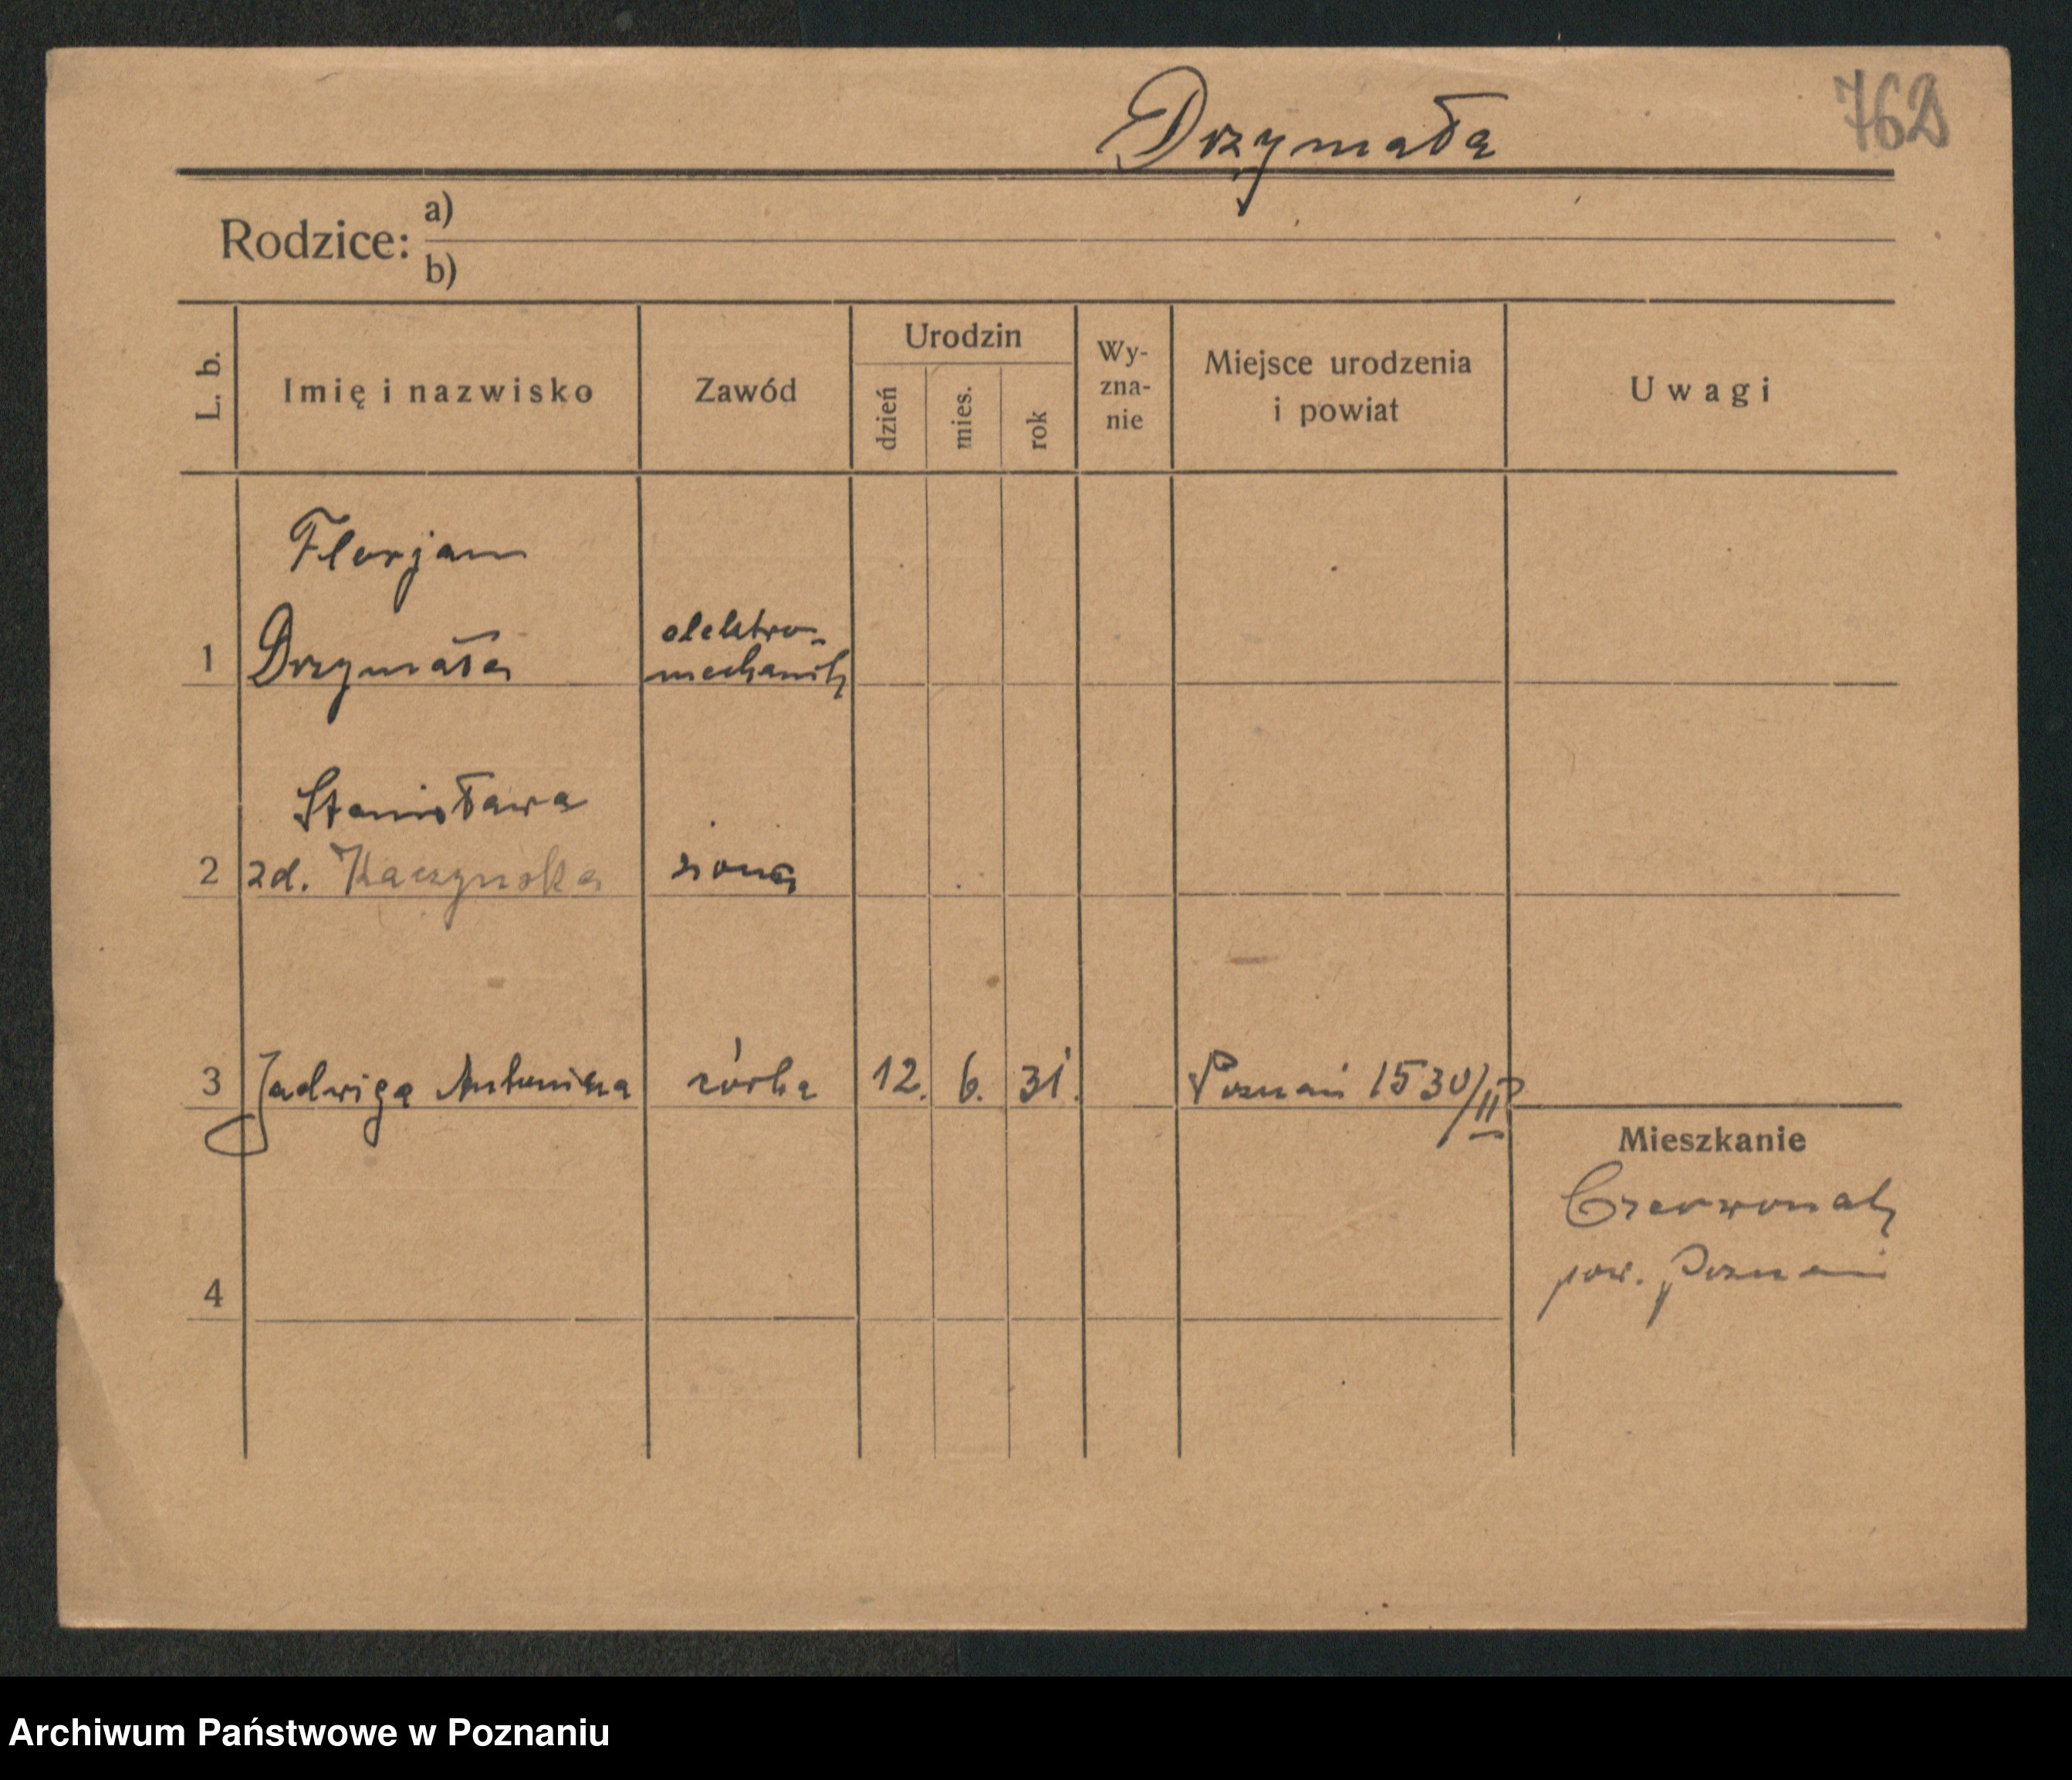 Drzymała
762
Rodzice: a)
b)
L. b.
Imię i nazwisko
Zawód
Urodzin
dzień
mies.
rok
Wy-
zna-
nie
Miejsce urodzenia
i powiat
Uwagi
Florjan
1 Drzymała
elektro-
mechanik
Stanisława
2 zd. Kaczyńska żona
3 Jadwiga Antonina córka 12. 6. 31. Poznań 1530/II
Mieszkanie
Czerwonak
pow. Poznań
4
Archiwum Państwowe w Poznaniu